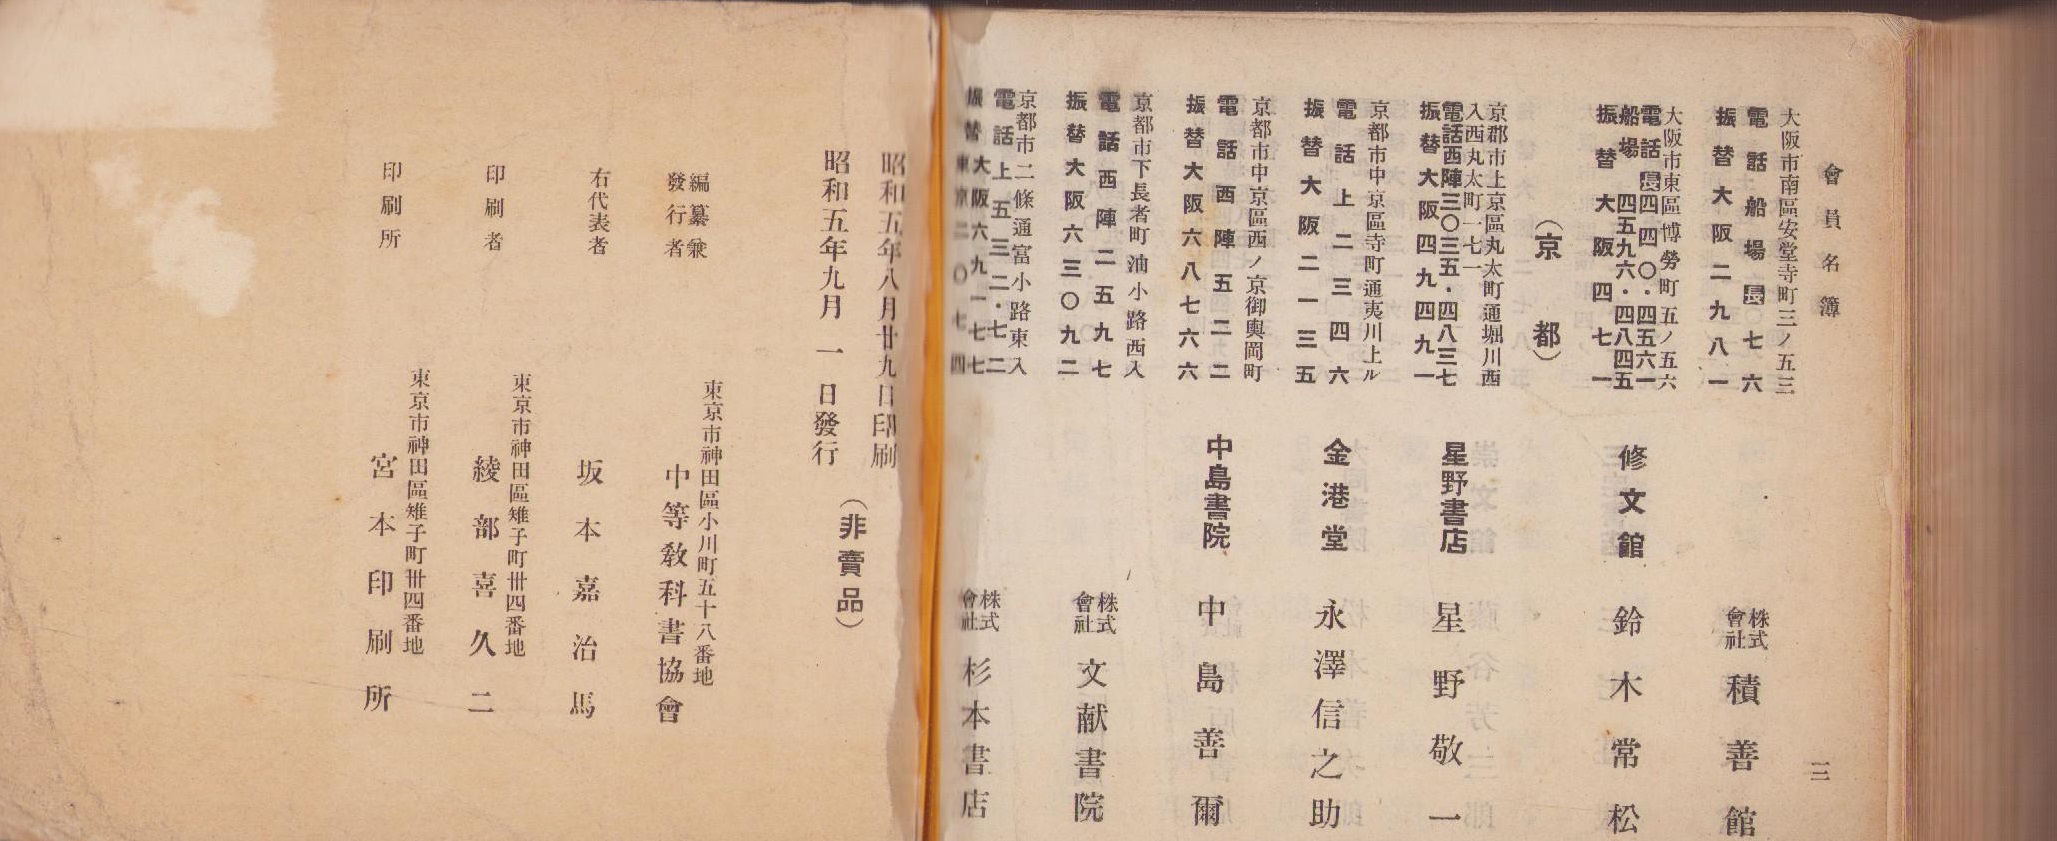 會員名簿
三
大阪市南區安堂寺町三ノ五三
電話船場長七六
振替大阪二九八一
株式會社 積善館
大阪市東區博勞町五ノ五六
電話長四四〇・四五六一
船場四五九六・四八四五
振替大阪四七一
修文館 鈴木常松
（京都）
京都市上京區丸太町通堀川西
入西丸太町一七一
電話西陣三〇三五・四八三七
振替大阪四九四九一
星野書店 星野敬一
京都市中京區寺町通夷川上ル
電話上二三四六
振替大阪二一三五
金港堂 永澤信之助
京都市中京區西ノ京御輿岡町
電話西陣五二二
振替大阪六八七六六
中島書院 中島善爾
京都市下長者町油小路西入
電話西陣二五九七
振替大阪六三〇九二
株式會社 文献書院
京都市二條通富小路東入
電話上五三二・七二
振替大阪六九一七七
東京二〇七四
株式會社 杉本書店
昭和五年八月廿九日印刷
昭和五年九月一日發行
（非賣品）
東京市神田區小川町五十八番地
編纂兼發行者 中等敎科書協會
右代表者 坂本嘉治馬
東京市神田區雉子町卅四番地
印刷者 綾部喜久二
東京市神田區雉子町卅四番地
印刷所 宮本印刷所